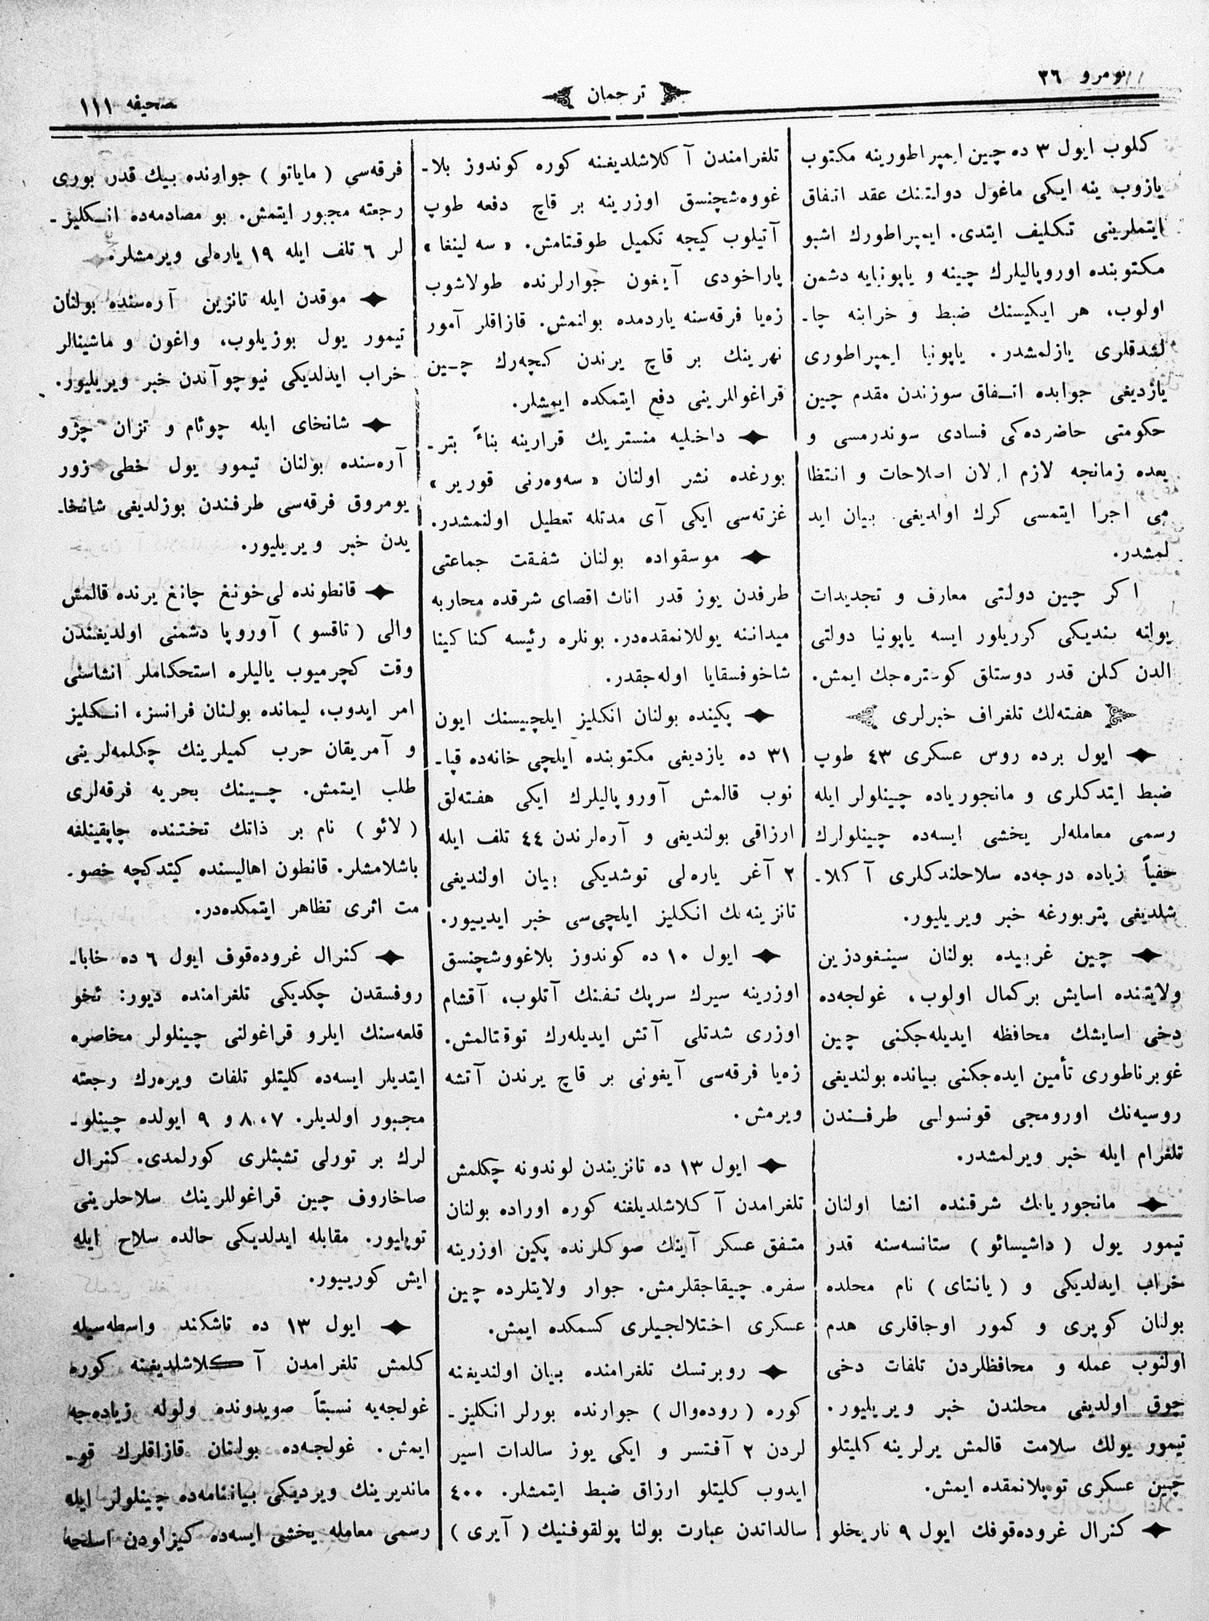 نومرو ٣٦
ترجمان
صحیفه ١١١
كلوب ایول ٣ ده چین ایمپراطورینه مكتوب
یازوب ینه ایكی ماغول دولتنك عقد اتفاق
ایتملرینی تكلیف ایتدی. ایمپراطورك اشبو
مكتوبنده اوروپالیلرك چینه و یاپونیایه دشمن
اولوب، هر ایكیسنك ضبط و خرابنه چا-
لشدقلری یازلمشدر. یاپونیا ایمپراطوری
یازدیغی جوابده اتفاق سوزندن مقدم چین
حكومتی حاضرده‌كی فسادی سوندرمسی و
بعده زمانجه لازم اولان اصلاحات و انتظا
می اجرا ایتمسی كرك اولدیغی بیان اید
لمشدر.
اكر چین دولتی معارف و تجدیدات
یولنه بندیكی كوریلور ایسه یاپونیا دولتی
الدن كلن قدر دوستلق كوستره‌جك ایمش.
هفته‌لك تلغراف خبرلری
ایول برده روس عسكری ٤٣ طوپ
ضبط ایتدكلری و مانجوریاده چینلولر ایله
رسمی معامله‌لر یخشی ایسه‌ده چینلولرك
خفیاً زیاده درجه‌ده سلاحلندكلری آكلا-
شلدیغی پتربورغه خبر ویریلیور.
چین غربیده بولنان سینغودزین
ولایتنده اسایش بركمال اولوب، غولجه‌ده
دخی اسایشك محافظه ایدیله‌جكنی چین
غوبرناطوری تأمین ایده‌جكنی بیانده بولندیغی
روسیه‌نك اورومجی قونسولی طرفندن
تلغرام ایله خبر ویرلمشدر.
مانجوریانك شرقنده انشا اولنان
تیمور یول (داشیسائو) ستانسه‌سنه قدر
خراب ایدلدیكی و (یانتای) نام محلده
بولنان كوپری و كمور اوجاقلری هدم
اولنوب عمله و محافظلردن تلفات دخی
چوق اولدیغی محلندن خبر ویریلیور.
تیمور یولك سلامت قالمش یرلرینه كلیتلو
چین عسكری توپلانمقده ایمش.
كنرال غروده‌قوفك ایول ٩ تاریخلو
تلغرامندن آكلاشلدیغنه كوره كوندوز بلا-
غووه‌شچنسق اوزرینه بر قاچ دفعه طوپ
آتیلوب كیجه تكمیل طوقتامش. «سه لینغا»
پاراخودی آیغون جوارلرنده طولاشوب
زه‌یا فرقه‌سنه یاردمده بولنمش. قازاقلر آمور
نهرینك بر قاچ یرندن كچه‌رك چین
قراغوللرینی دفع ایتمكده ایمشلر.
داخلیه منستریك قرارینه بناءً بتر-
بورغده نشر اولنان «سه‌وه‌رنی قوریر»
غزته‌سی ایكی آی مدتله تعطیل اولنمشدر.
موسقواده بولنان شفقت جماعتی
طرفدن یوز قدر اناث اقصای شرقده محاربه
میداننه یوللانمقده‌در. بونلره رئیسه كناكینا
شاخوفسقایا اوله‌جقدر.
پكینده بولنان انكلیز ایلچیسنك ایون
٣١ ده یازدیغی مكتوبنده ایلچی خانه‌ده قپا-
نوب قالمش آوروپالیلرك ایكی هفته‌لق
ارزاقی بولندیغی و آره‌لرندن ٤٤ تلف ایله
٢ آغر یاره‌لی توشدیكی بیان اولندیغی
تانزینه‌نك انكلیز ایلچی‌سی خبر ایدییور.
ایول ١٠ ده كوندوز بلاغووشچنسق
اوزرینه سیرك سرپك تفنك آتلوب، آقشام
اوزری شدتلی آتش ایدیله‌رك توقتالمش.
زه‌یا فرقه‌سی آیغونی بر قاچ یرندن آتشه
ویرمش.
ایول ١٣ ده تانزیندن لوندونه چكلمش
تلغرامدن آكلاشلدیلغنه كوره اوراده بولنان
متفق عسكر آینك صوكلرنده پكین اوزرینه
سفره چیقاجقلرمش. جوار ولایتلرده چین
عسكری اختلالجیلری كسمكده ایمش.
روبرتسك تلغرامنده بیان اولندیغنه
كوره (روده‌وال) جوارنده بورلر انكلیز-
لردن ٢ آفتسر و ایكی یوز سالدات اسیر
ایدوب كلیتلو ارزاق ضبط ایتمشلر. ٤٠٠
سالداتدن عبارت بولنا پولقوفنیك (آیری)
فرقه‌سی (مایاتو) جوارنده بیك قدر بوری
رجعته مجبور ایتمش. بو مصادمه‌ده انكلیز-
لر ٦ تلف ایله ١٩ یاره‌لی ویرمشلر.
موقدن ایله تانزین آره‌سنده بولنان
تیمور یول بوزیلوب، واغون و ماشینالر
خراب ایدلدیكی نیوچوآندن خبر ویریلیور.
شانخای ایله چوئام و تزان چژو
آره‌سنده بولنان تیمور یول خطی زور
یومروق فرقه‌سی طرفندن بوزلدیغی شانخا-
یدن خبر ویریلیور.
قانطونده لی‌خونغ چانغ یرنده قالمش
والی (تاقسو) آوروپا دشمنی اولدیغندن
وقت كچرمیوب یالیلره استحكاملر انشاسنی
امر ایدوب، لیمانده بولنان فرانسز، انكلیز
و آمریقان حرب كمیلرینك چكلمه‌لرینی
طلب ایتمش. چینك بحریه فرقه‌لری
(لائو) نام بر ذاتك تختنده چاپقینلغه
باشلامشلر. قانطون اهالیسنده كیتدكچه خصو-
مت اثری تظاهر ایتمكده‌در.
كنرال غروده‌قوف ایول ٦ ده خابا-
روفسقدن چكدیكی تلغرامنده دیور: ئخو
قلعه‌سنك ایلرو قراغولنی چینلولر محاصره
ایتدیلر ایسه‌ده كلیتلو تلفات ویره‌رك رجعته
مجبور اولدیلر. ٧، ٨ و ٩ ایولده چینلو-
لرك بر تورلی تشبثلری كورلمدی. كنرال
صاخاروف چین قراغوللرینك سلاحلرینی
توپلیور. مقابله ایدلدیكی حالده سلاح ایله
ایش كورییور.
ایول ١٣ ده تاشكند واسطه‌سیله
كلمش تلغرامدن آكلاشلدیغنه كوره
غولجه‌یه نسبتاً صویدونده ولوله زیاده‌جه
ایمش. غولجه‌ده بولنان قازاقلرك قو-
ماندیرینك ویردیكی بیاننامه‌ده چینلولر ایله
رسمی معامله یخشی ایسه‌ده كیزلودن اسلحه